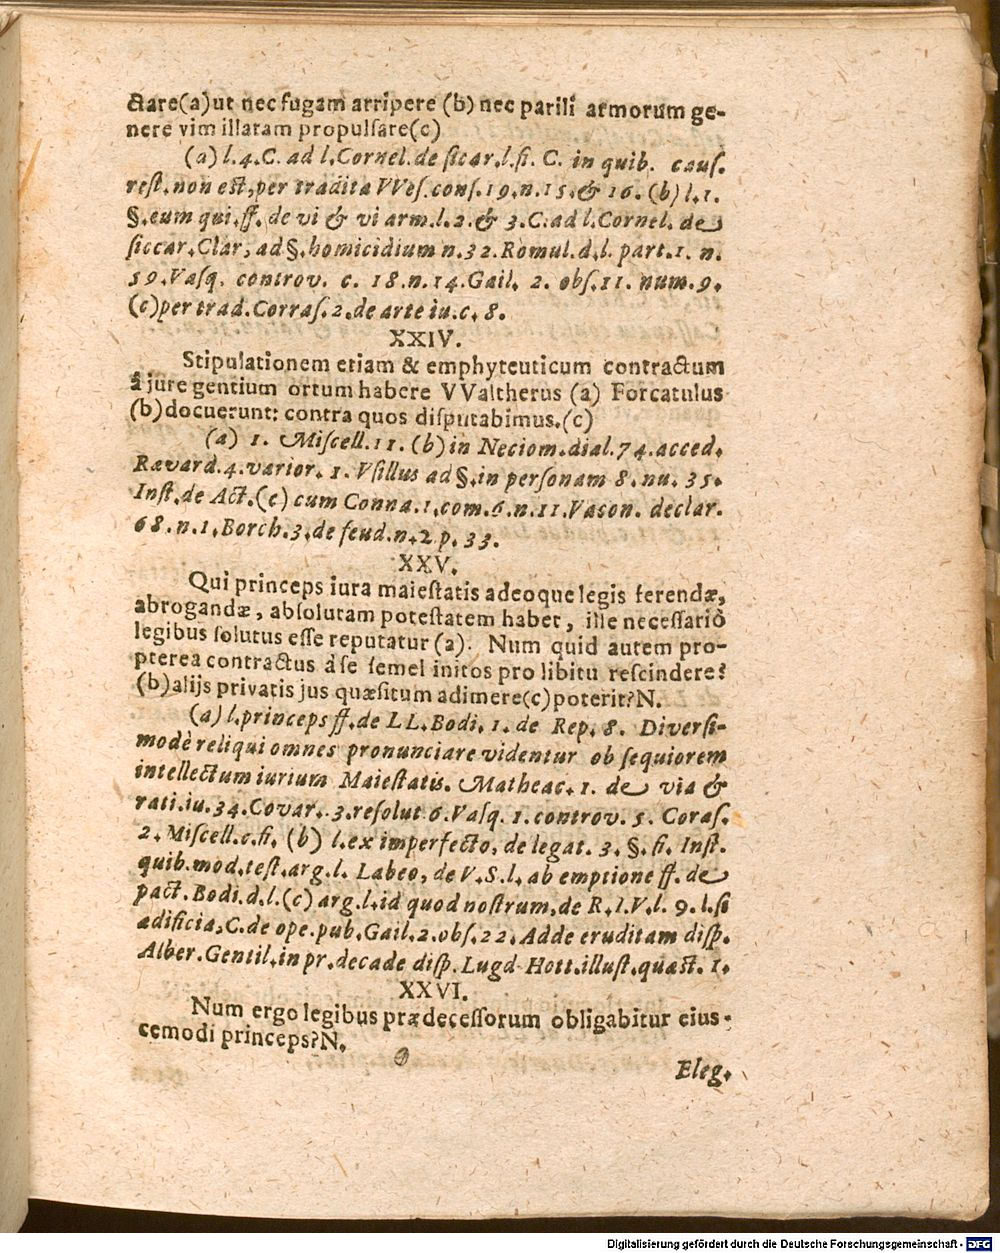 ctare(a)ut nec fugam arripere (b) nec parili armorum ge-
nere vim illatam propulſare(c)
(a) l. 4. C. ad l. Cornel. de ſicar. l. fi. C. in quib. cauſ.
reſt. non eſt, per tradita VVeſ. conſ. 19. n. 15. & 16. (b) l. 1.
§. eum qui. ff. de vi & vi arm. l. 2. & 3. C. ad l. Cornel. de
ſiccar. Clar, ad §. homicidium n. 32. Romul. d. l. part. 1. n.
59. Vaſq. controv. c. 18. n. 14. Gail. 2. obſ. 11. num. 9.
(c) per trad. Corraſ. 2. de arte iu. c. 8.
XXIV.
Stipulationem etiam & emphyteuticum contractum
â jure gentium ortum habere VValtherus (a) Forcatulus
(b) docuerunt: contra quos diſputabimus. (c)
(a) 1. Miſcell. 11. (b) in Neciom. dial. 74. acced.
Rævard. 4. varior. 1. Vſillus ad §. in perſonam 8. nu. 35.
Inſt. de Act. (c) cum Conna. 1. com. 6. n. 11. Vacon. declar.
68. n. 1. Borch. 3. de feud. n. 2 p. 33.
XXV.
Qui princeps iura maieſtatis adeoque legis ferendæ,
abrogandæ, abſolutam poteſtatem habet, ille neceſſariò
legibus ſolutus eſſe reputatur (a). Num quid autem pro-
pterea contractus â ſe ſemel initos pro libitu reſcindere?
(b) alijs privatis jus quæſitum adimere (c) poterit? N.
(a) l. princeps ff. de LL. Bodi. 1. de Rep. 8. Diverſi-
modè reliqui omnes pronunciare videntur ob ſequiorem
intellectum iurium Maieſtatis. Matheac. 1. de via &
rati. iu. 34. Covar. 3. reſolut 6. Vaſq. 1. controv. 5. Coraſ.
2. Miſcell. c. fi. (b) l. ex imperfecto, de legat. 3. §. fi. Inſt.
quib. mod. teſt. arg. l. Labeo, de V. S. l. ab emptione ff. de
pact. Bodi. d. l. (c) arg. l. id quod noſtrum, de R. I. V. l. 9. l. ſi
adificia, C. de ope. pub. Gail. 2. obſ. 22. Adde eruditam diſp.
Alber. Gentil. in pr. decade diſp. Lugd Hott. illuſt. quæſt. 1.
XXVI.
Num ergo legibus prædeceſſorum obligabitur eius-
cemodi princeps? N.
Eleg.
Digitalisierung gefördert durch die Deutsche Forschungsgemeinschaft - DFG